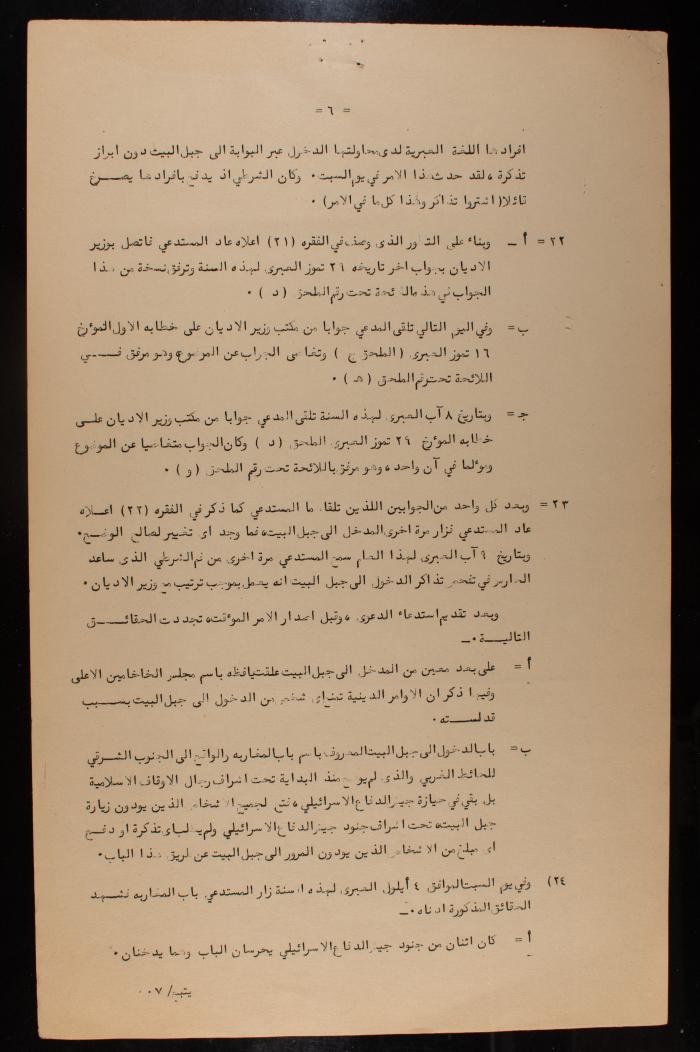 = ٦ =
افرادها اللغة العبرية لدى محاولتها الدخول عبر البوابة الى جبل البيت دون ابراز
تذكرة ، لقد حدث هذا الامر في يوم السبت . وكان الشرطي اذ يدفع بافرادها يصـــرخ
قائلا ( اشتروا تذاكر وهذا كل ما في الامر ) .
٢٢ = أ ــ وبناء على التطور الذى وصف في الفقره (٢١) اعلاه عاد المستدعي فاتصل بوزير
الاديان بجواب اخر تاريخه ٢٦ تموز العبرى لهذه السنة وترفق نسخة من هذا
الجواب في هذه اللائحة تحت رقم الملحق ( د ) .
ب = وفي اليوم التالي تلقى المدعي جوابا من مكتب وزير الاديان على خطابه الاول المؤرخ
١٦ تموز العبرى ( الملحق ج ) وتغاضى الجواب عن الموضوع وهو مرفق فـــــي
اللائحة تحت رقم الملحق ( هـ ) .
جـ = وبتاريخ ٨ آب العبرى لهذه السنة تلقى المدعي جوابا من مكتب وزير الاديان علـــى
خطابه المؤرخ ٢٩ تموز العبرى الملحق ( د ) وكان الجواب متغاضيا عن الموضوع
ومؤلما في آن واحد ، وهو مرفق باللائحة تحت رقم الملحق ( و ) .
٢٣ = وبعد كل واحد من الجوابين اللذين تلقاهما المستدعي كما ذكر في الفقره (٢٢) اعـــلاه
عاد المستدعي فزار مرة اخرى المدخل الى جبل البيت ، فما وجد اى تغيير لصالح الوضع .
وبتاريخ ٩ آب العبرى لهذا العام سمع المستدعي مرة اخرى من فم الشرطي الذى ساعد
الحارس في تفحص تذاكر الدخول الى جبل البيت انه يعمل بموجب ترتيب مع وزير الاديان .
وبعد تقديم استدعاء الدعوى ، وقبل اصدار الامر الموقت ، تجددت الحقائـــــق
التاليــــة . ــ
أ = على بعد معين من المدخل الى جبل البيت علقت يافطه باسم مجلس الحاخامين الاعلى
وفيها ذكر ان الاوامر الدينية تمنع اى شخص من الدخول الى جبل البيت بســـبب
قدسـته .
ب = باب الدخول الى جبل البيت المعروف باسم باب المغاربه والواقع الى الجنوب الشـرقي
للحائط الغربي والذى لم يوضع منذ البداية تحت اشراف رجال الاوقاف الاسلامية
بل بقي في حيازة جيش الدفاع الاسرائيلي ، فتح لجميع الاشخاص الذين يودون زيارة
جبل البيت ، تحت اشراف جنود جيش الدفاع الاسرائيلي ولم يطلب اى تذكرة او دفـــع
اى مبلغ من الاشخاص الذين يودون المرور الى جبل البيت عن طريق هذا الباب .
٢٤) وفي يوم السبت الموافق ٤ أيلول العبرى لهذه السنة زار المستدعي باب المغاربه فشـــهد
الحقائق المذكورة ادناه . ــ
أ = كان اثنان من جنود جيش الدفاع الاسرائيلي يحرسان الباب وهما يدخنان .
يتبع / ٠٠٧